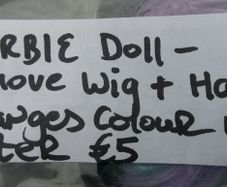 RBIE Doll –
move Wig + Ha
anges Colour
ter €5